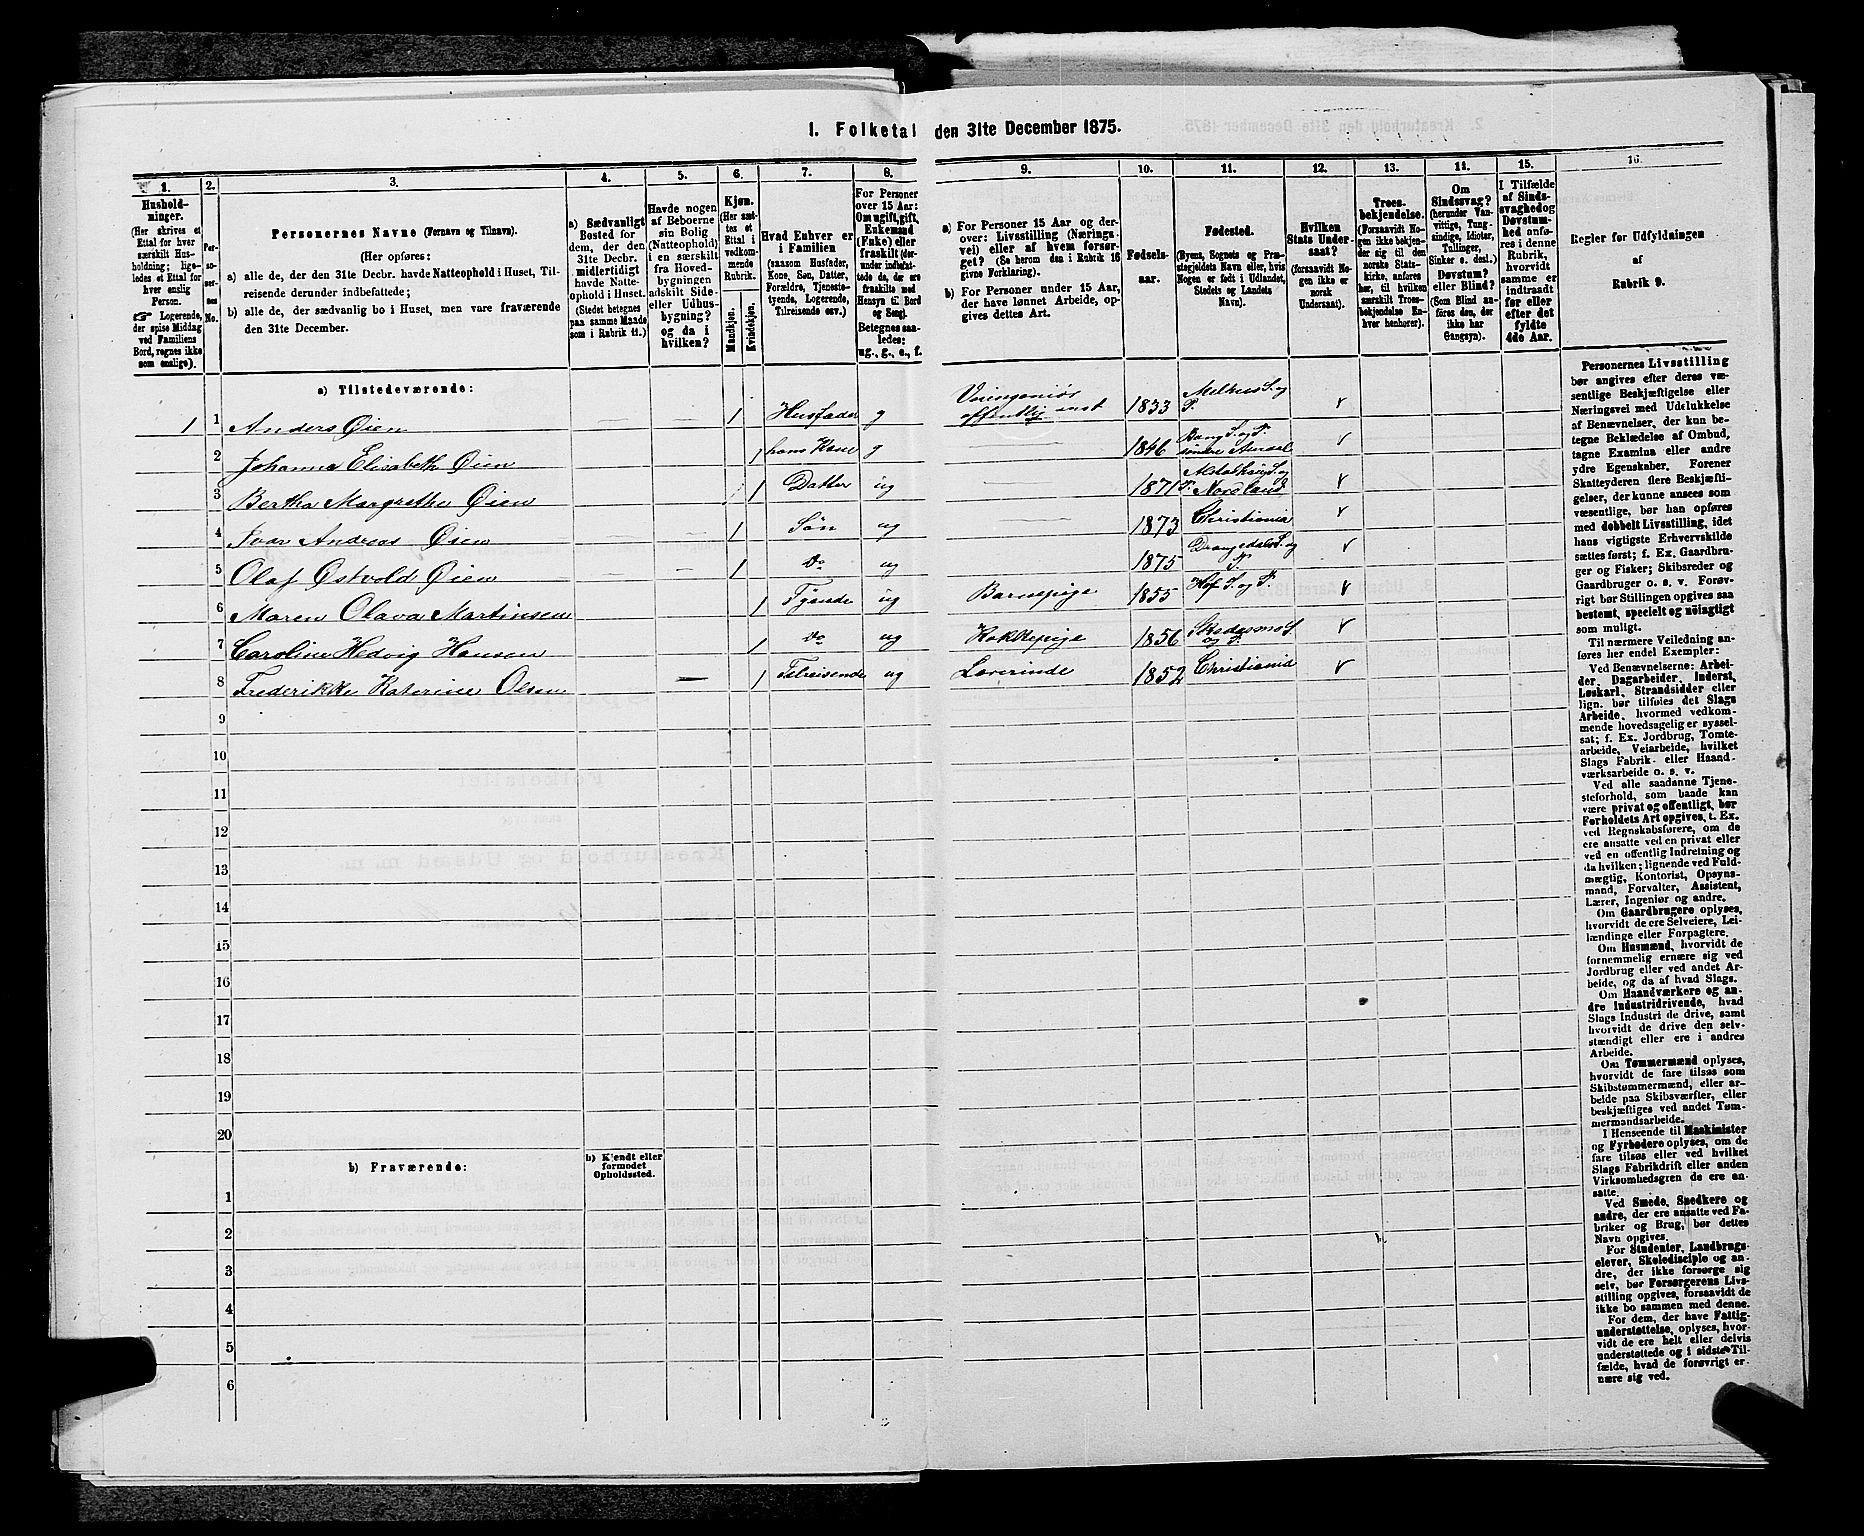 1. Folketal den 31te December 1875.
1.
2.
3.
4.
5.
6.
7.
8.
9.
10.
11.
12.
13.
14.
15.
16.
Hushold-
ninger.
(Her skrives et
Ettal for hver
særskilt Hus-
holdning; lige-
ledes et Ettal for
hver enslig
Person.
☞ Logerende,
der spise Middag
ved Familiens
Bord, regnes ikke
som enslige).
Per-
so-
ner-
nes
No.
Personernes Navne (Fornavn og Tilnavn).
(Her opføres:
a) alle de, der den 31te Decbr. havde Natteophold i Huset, Til-
reisende derunder indbefattede;
b) alle de, der sædvanlig bo i Huset, men vare fraværende
den 31te December.
a) Sædvanligt
Bosted for
dem, der den
31te Decbr.
midlertidigt
havde Natte-
ophold i Huset.
(Stedet betegnes
paa samme Maade
som i Rubrik 11.)
Havde nogen
af Beboerne
sin Bolig
(Natteophold)
i en særskilt
fra Hoved-
bygningen
adskilt Side-
eller Udhus-
bygning?
og da i
hvilken?
Kjøn.
(Her sæt-
tes et
Ettal i
vedkom-
mende
Rubrik.
Mandkjøn.
Kvindekjøn.
Hvad Enhver er
i Familien
(saasom Husfader,
Kone, Søn, Datter,
Forældre, Tjeneste-
tyende, Logerende,
Tilreisende osv.)
For Personer
over 15 Aar:
Om ugift, gift,
Enkemand
(Enke) eller
fraskilt (der-
under indbefat-
tede de, der ere
fraskilte med
Hensyn til Bord
og Seng).
Betegnes saa-
ledes:
ug., g., e., f.
a) For Personer 15 Aar og der-
over: Livsstilling (Nærings-
vei) eller af hvem forsør-
get? (Se herom den i Rubrik 16
givne Forklaring).
b) For Personer under 15 Aar,
der have lønnet Arbeide, op-
gives dettes Art.
Fødsels-
aar.
Fødested.
(Byens, Sognets og Præ-
stegjeldets Navn eller, hvis
Nogen er født i Udlandet,
Stedets og Landets
Navn).
Hvilken
Stats Under-
saat?
(forsaavidt No-
gen ikke er
norsk
Undersaat).
Troes-
bekjendelse.
(Forsaavidt No-
gen ikke bekjen-
der sig til den
norske Stats-
kirke, anføres
her, til hvilken
særskilt Troes-
bekjendelse En-
hver henhører).
Om
Sindssvag?
(herunder Van-
vittige, Tung-
sindige, Idioter,
Tullinger,
Sinker o. desl.)
Døvstum?
eller Blind?
(Som Blind an-
føres den, der
ikke har
Gangsyn).
I Tilfælde
af Sinds-
svaghed og
Døvstum-
hed anfø-
res i denne
Rubrik,
hvorvidt
samme er
indtraadt
før eller
efter det
fyldte
4de Aar.
Regler for Udfyldningen
af
Rubrik 9.
a) Tilstedeværende:
1 1 Anders Øien 1 Husfader g Veiingeniør offentlig anst 1833 Melhus S. og P.
2 Johanna Elisabeth Øien 1 hans Kone g 1846 Bang S. og P. søndre Aurdal
3 Bertha Margrethe Øien 1 Datter ug 1871 Alstahaug S. og P. Nordland
4 Ivar Andreas Øien 1 Søn ug 1873 Christiania
5 Olaf Østvold Øien 1 do ug 1875 Drangedals S. og P.
6 Maren Olava Martinsen 1 Tyende ug Barnepige 1855 Hof S. og P.
7 Caroline Hedvig Hansen 1 do ug Kokkepige 1856 Skedesmo S. og P.
8 Frederikke Katerine Olsen 1 Tilreisende ug Lærerinde 1852 Christiania
9
10
11
12
13
14
15
16
17
18
19
20
b) Fraværende:
b) Kjendt eller
formodet
Opholdssted.
1
2
3
4
5
6
Personernes Livsstilling
bør angives efter deres væ-
sentlige Beskjæftigelse eller
Næringsvei med Udelukkelse
af Benævnelser, der kun be-
tegne Beklædelse af Ombud,
tagne Examina eller andre
ydre Egenskaber. Forener
Skatteyderen flere Beskjæfti-
gelser, der kunne ansees som
væsentlige, bør han opføres
med dobbelt Livsstilling, idet
hans vigtigste Erhvervskilde
sættes først; f. Ex. Gaardbru-
ger og Fisker; Skibsreder og
Gaardbruger o. s. v. Forøv-
rigt bør Stillingen opgives saa
bestemt, specielt og nøiagtigt
som muligt.
Til nærmere Veiledning an-
føres her endel Exempler:
Ved Benævnelserne: Arbei-
der, Dagarbeider, Inderst,
Løskarl, Strandsidder eller
lign. bør tilføies det Slags
Arbeide, hvormed vedkom-
mende hovedsagelig er syssel-
sat; f. Ex. Jordbrug, Tomte-
arbeide, Veiarbeide, hvilket
Slags Fabrik- eller Haand-
værksarbeide o. s. v.
Ved alle saadanne Tjene-
steforhold, som baade kan
være privat og offentligt, bør
Forholdets Art opgives, t. Ex.
ved Regnskabsførere, om de
ere ansatte ved en privat eller
ved en offentlig Indretning og
da hvilken; lignende ved Fuld-
mægtig, Kontorist, Opsyns-
mand, Forvalter, Assistent,
Lærer, Ingeniør og andre.
Om Gaardbrugere oplyses,
hvorvidt de ere Selveiere, Lei-
lændinge eller Forpagtere.
Om Husmænd, hvorvidt de
fornemmelig ernære sig ved
Jordbrug eller ved andet Ar-
beide, og da af hvad Slags.
Om Haandværkere og an-
dre Industridrivende, hvad
Slags Industri de drive, samt
hvorvidt de drive den selv-
stændigt eller ere i andres
Arbeide.
Om Tømmermænd oplyses,
hvorvidt de fare tilsøs som
Skibstømmermænd, eller ar-
beide paa Skibsværfter, eller
beskjæftiges ved andet Tøm-
mermandsarbeide.
I Henseende til Maskinister
og Fyrbødere oplyses, om de
fare tilsøs eller ved hvilket
Slags Fabrikdrift eller anden
Virksomhedsgren de ere an-
satte.
Ved Smede, Snedkere og
andre, der ere ansatte ved Fa-
briker og Brug, bør dettes
Navn opgives.
For Studenter, Landbrugs-
elever, Skoledisciple og an-
dre, der ikke forsørge sig
selv, bør Forsørgerens Livs-
stilling opgives, forsaavidt de
ikke bo sammen med denne.
For dem, der have Fattig-
understøttelse, oplyses, hvor-
vidt de ere helt eller delvis
understøttede og i sidste Til-
fælde, hvad de forøvrigt er-
nære sig ved.